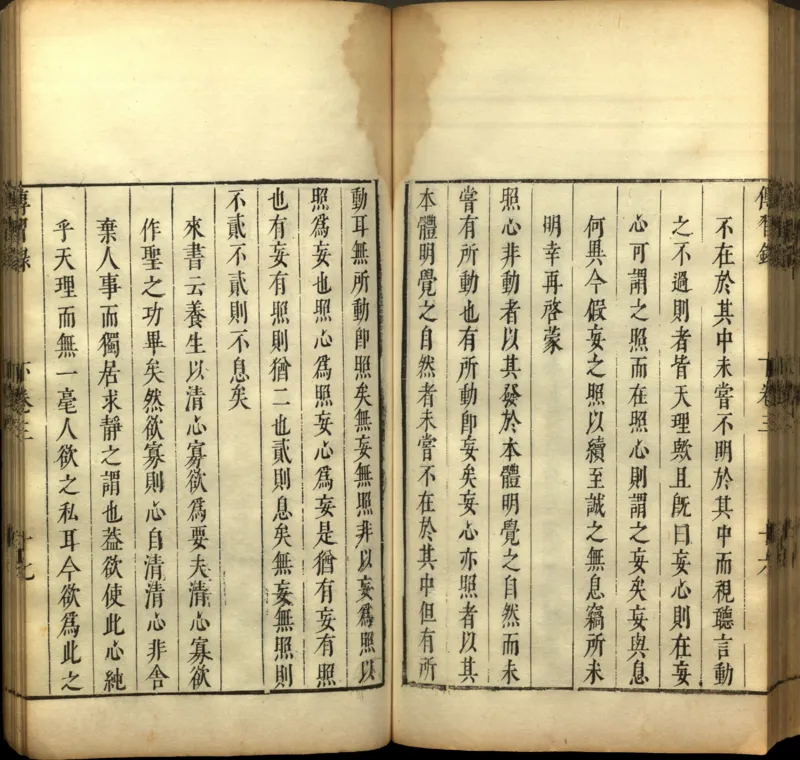 傳習錄 下卷三 十六
不在於其中未嘗不明於其中而視聽言動
之不過則者皆天理歟且既曰妄心則在妄
心可謂之照而在照心則謂之妄矣妄與息
何異今假妄之照以續至誠之無息竊所未
明幸再啓蒙
照心非動者以其發於本體明覺之自然而未
嘗有所動也有所動卽妄矣妄心亦照者以其
本體明覺之自然者未嘗不在於其中但有所
動耳無所動卽照矣無妄無照非以妄爲照以
照爲妄也照心爲照妄心爲妄是猶有妄有照
也有妄有照則猶二也貳則息矣無妄無照則
不貳不貳則不息矣
來書云養生以清心寡欲爲要夫清心寡欲
作聖之功畢矣然欲寡則心自清清心非舍
棄人事而獨居求靜之謂也葢欲使此心純
乎天理而無一毫人欲之私耳今欲爲此之
傳習録 下卷三 十七